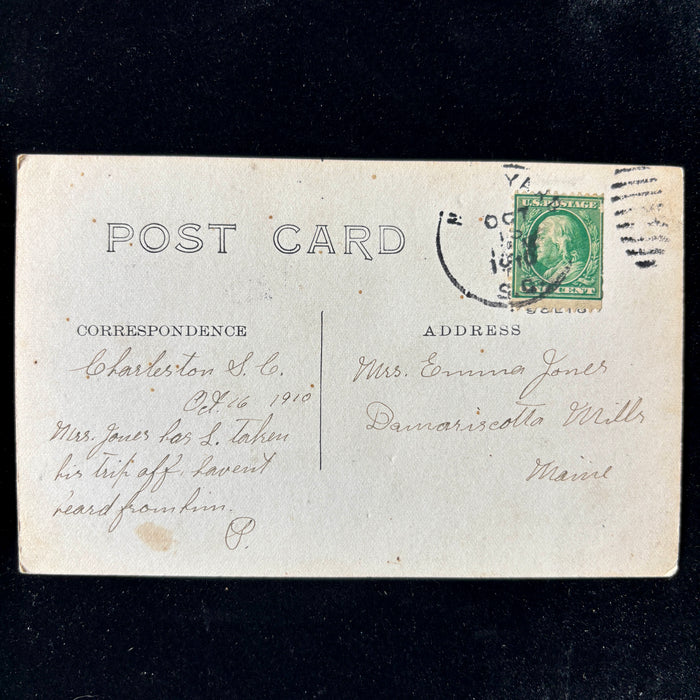 POST CARD
OCT
1910
U.S. POSTAGE
CENT
CORRESPONDENCE
ADDRESS
Charleston S. C.
Oct. 16 1910
Mrs. Jones has L. taken
his trip off, havent
heard from him.
P.
Mrs. Emma Jones
Damariscotta Mills
Maine